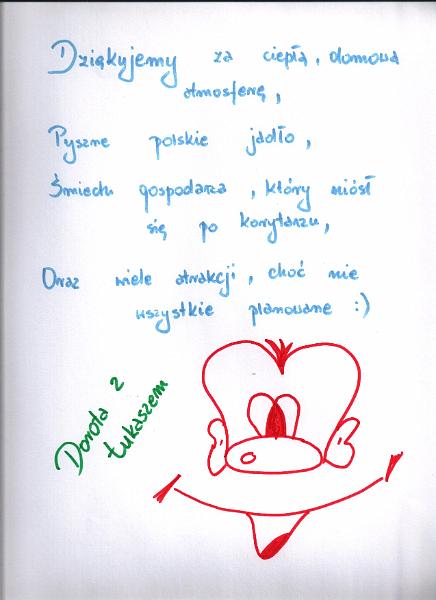 Dziąkujemy za ciepłą, domową
atmosferę,
Pyszne polskie jadło,
Śmiech gospodarza, który niósł
się po korytarzu,
Oraz wiele atrakcji, choć nie
wszystkie planowane :)
Dorota z
Łukaszem